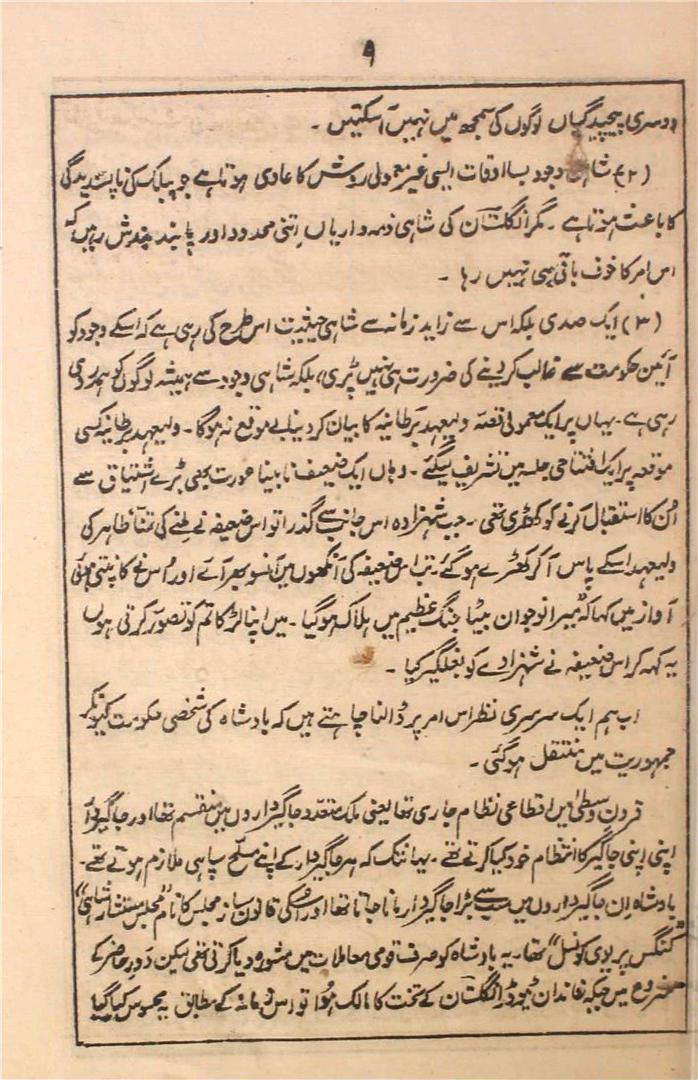 ۹
دوسری پیچیدگیاں لوگوں کی سمجھ میں نہیں آسکتیں ۔
(۲) شاہی وجود بسا اوقات ایسی غیر معمولی روش کا عادی ہوتا ہے جو پبلک کی ناپسندیدگی
کا باعث ہوتا ہے ۔ مگر انگلستان کی شاہی ذمہ داریاں اتنی محدود اور پابند بندش رہیں کہ
اس امر کا خوف باقی ہی نہیں رہا ۔
(۳) ایک صدی بلکہ اس سے زاید زمانہ سے شاہی حیثیت اس طرح کی رہی ہے کہ اسکے وجود کو
آئین حکومت سے غائب کر دینے کی ضرورت ہی نہیں پڑی، بلکہ شاہی وجود سے ہمیشہ لوگوں کو ہمدردی
رہی ہے ۔ یہاں پر ایک معمولی قصہ ولیعہد برطانیہ کا بیان کر دینا بے موقع نہ ہوگا ۔ ولیعہد برطانیہ کسی
موقعہ پر ایک افتتاحی جلسہ میں تشریف لیگئے ۔ وہاں ایک ضعیف نابینا عورت بھی بڑے اشتیاق سے
اُن کا استقبال کرنے کو کھڑی تھی ۔ جب شہزادہ اس جانب سے گذرا تو اس ضعیفہ نے ملنے کی تمنا ظاہر کی
ولیعہد اسکے پاس آ کر کھڑے ہو گئے ۔ تب اس ضعیفہ کی آنکھوں میں آنسو بھر آئے اور اُس نے کانپتی ہوئی
آواز میں کہا کہ میرا نوجوان بیٹا جنگ عظیم میں ہلاک ہو گیا ۔ میں اپنا لڑکا تم کو تصور کرتی ہوں
یہ کہہ کر اس ضعیفہ نے شہزادے کو بغلگیر کیا ۔
اب ہم ایک سرسری نظر اس امر پر ڈالنا چاہتے ہیں کہ بادشاہ کی شخصی حکومت کیونکر
جمہوریت میں منتقل ہو گئی ۔
قرون وسطیٰ میں اقطاعی نظام جاری تھا یعنی ملک متعدد جاگیرداروں میں منقسم تھا اور جاگیردار
اپنی اپنی جاگیر کا انتظام خود کیا کرتے تھے ۔ یہانتک کہ ہر جاگیردار کے اپنے مسلح سپاہی ملازم ہوتے تھے ۔
بادشاہ ان جاگیرداروں میں سب سے بڑا جاگیردار مانا جاتا تھا اور اسکی قانون ساز مجلس کا نام "مجلس مستشار شاہی"
"کنگس پریوی کونسل" تھا ۔ یہ بادشاہ کو صرف قومی معاملات میں مشورہ دیا کرتی تھی لیکن دَورِ حاضر کے
شروع میں جبکہ خاندان ٹیوڈر انگلستان کے تخت کا مالک ہوا تو اس زمانہ کے مطابق یہ محسوس کیا گیا